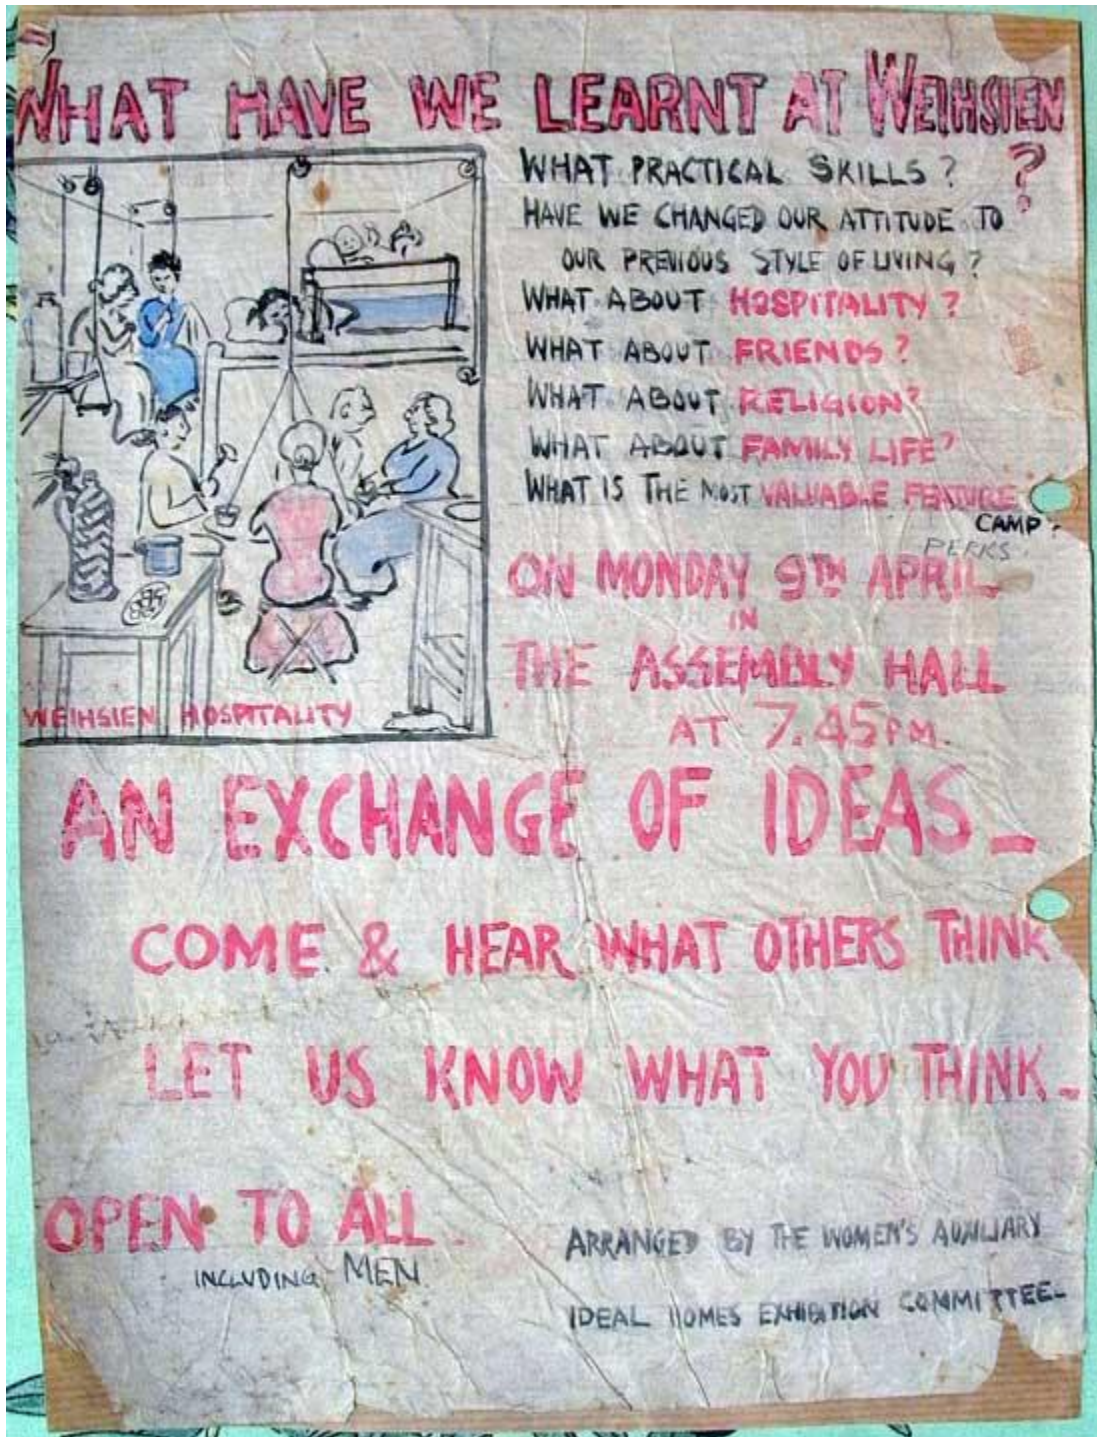 WHAT HAVE WE LEARNT AT WEIHSIEN ?
WHAT PRACTICAL SKILLS ?
HAVE WE CHANGED OUR ATTITUDE TO
OUR PREVIOUS STYLE OF LIVING ?
WHAT ABOUT HOSPITALITY ?
WHAT ABOUT FRIENDS ?
WHAT ABOUT RELIGION ?
WHAT ABOUT FAMILY LIFE ?
WHAT IS THE MOST VALUABLE FEATURE
CAMP ?
PERKS
WEIHSIEN HOSPITALITY
ON MONDAY 9TH APRIL
IN
THE ASSEMBLY HALL
AT 7.45 PM.
AN EXCHANGE OF IDEAS _
COME & HEAR WHAT OTHERS THINK
LET US KNOW WHAT YOU THINK _
OPEN TO ALL
INCLUDING MEN
ARRANGED BY THE WOMEN'S AUXILIARY
IDEAL HOMES EXHIBITION COMMITTEE -